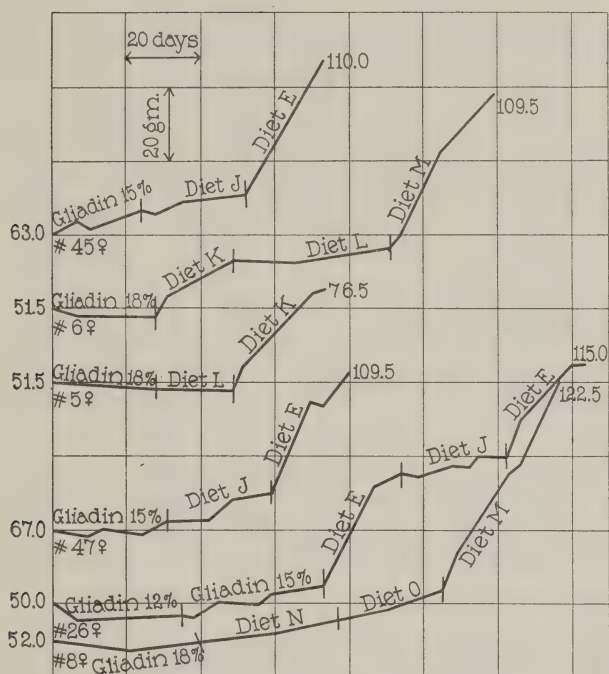 20 days
20 gm.
110.0
Diet E
109.5
Gliadin 15%
Diet J
Diet M
63.0
#45♀
Diet K
Diet L
51.5
Gliadin 18%
#6♀
76.5
Diet K
51.5
Gliadin 18%
Diet L
#5♀
115.0
109.5
Diet E
122.5
Diet E
Diet J
Gliadin 15%
Diet J
67.0
#47♀
Diet E
Diet M
Gliadin 15%
50.0
Gliadin 12%
#26♀
Diet O
52.0
Diet N
#8♀
Gliadin 18%